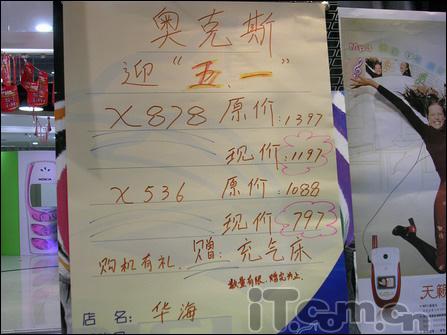 奥克斯
迎“五.一”
X878 原价:1397
现价:1197
X536 原价:1088
现价:797
购机有礼.赠:充气床
数量有限.赠完为止.
店名:华海
NOKIA
Mp3
天籁
iTcom.cn